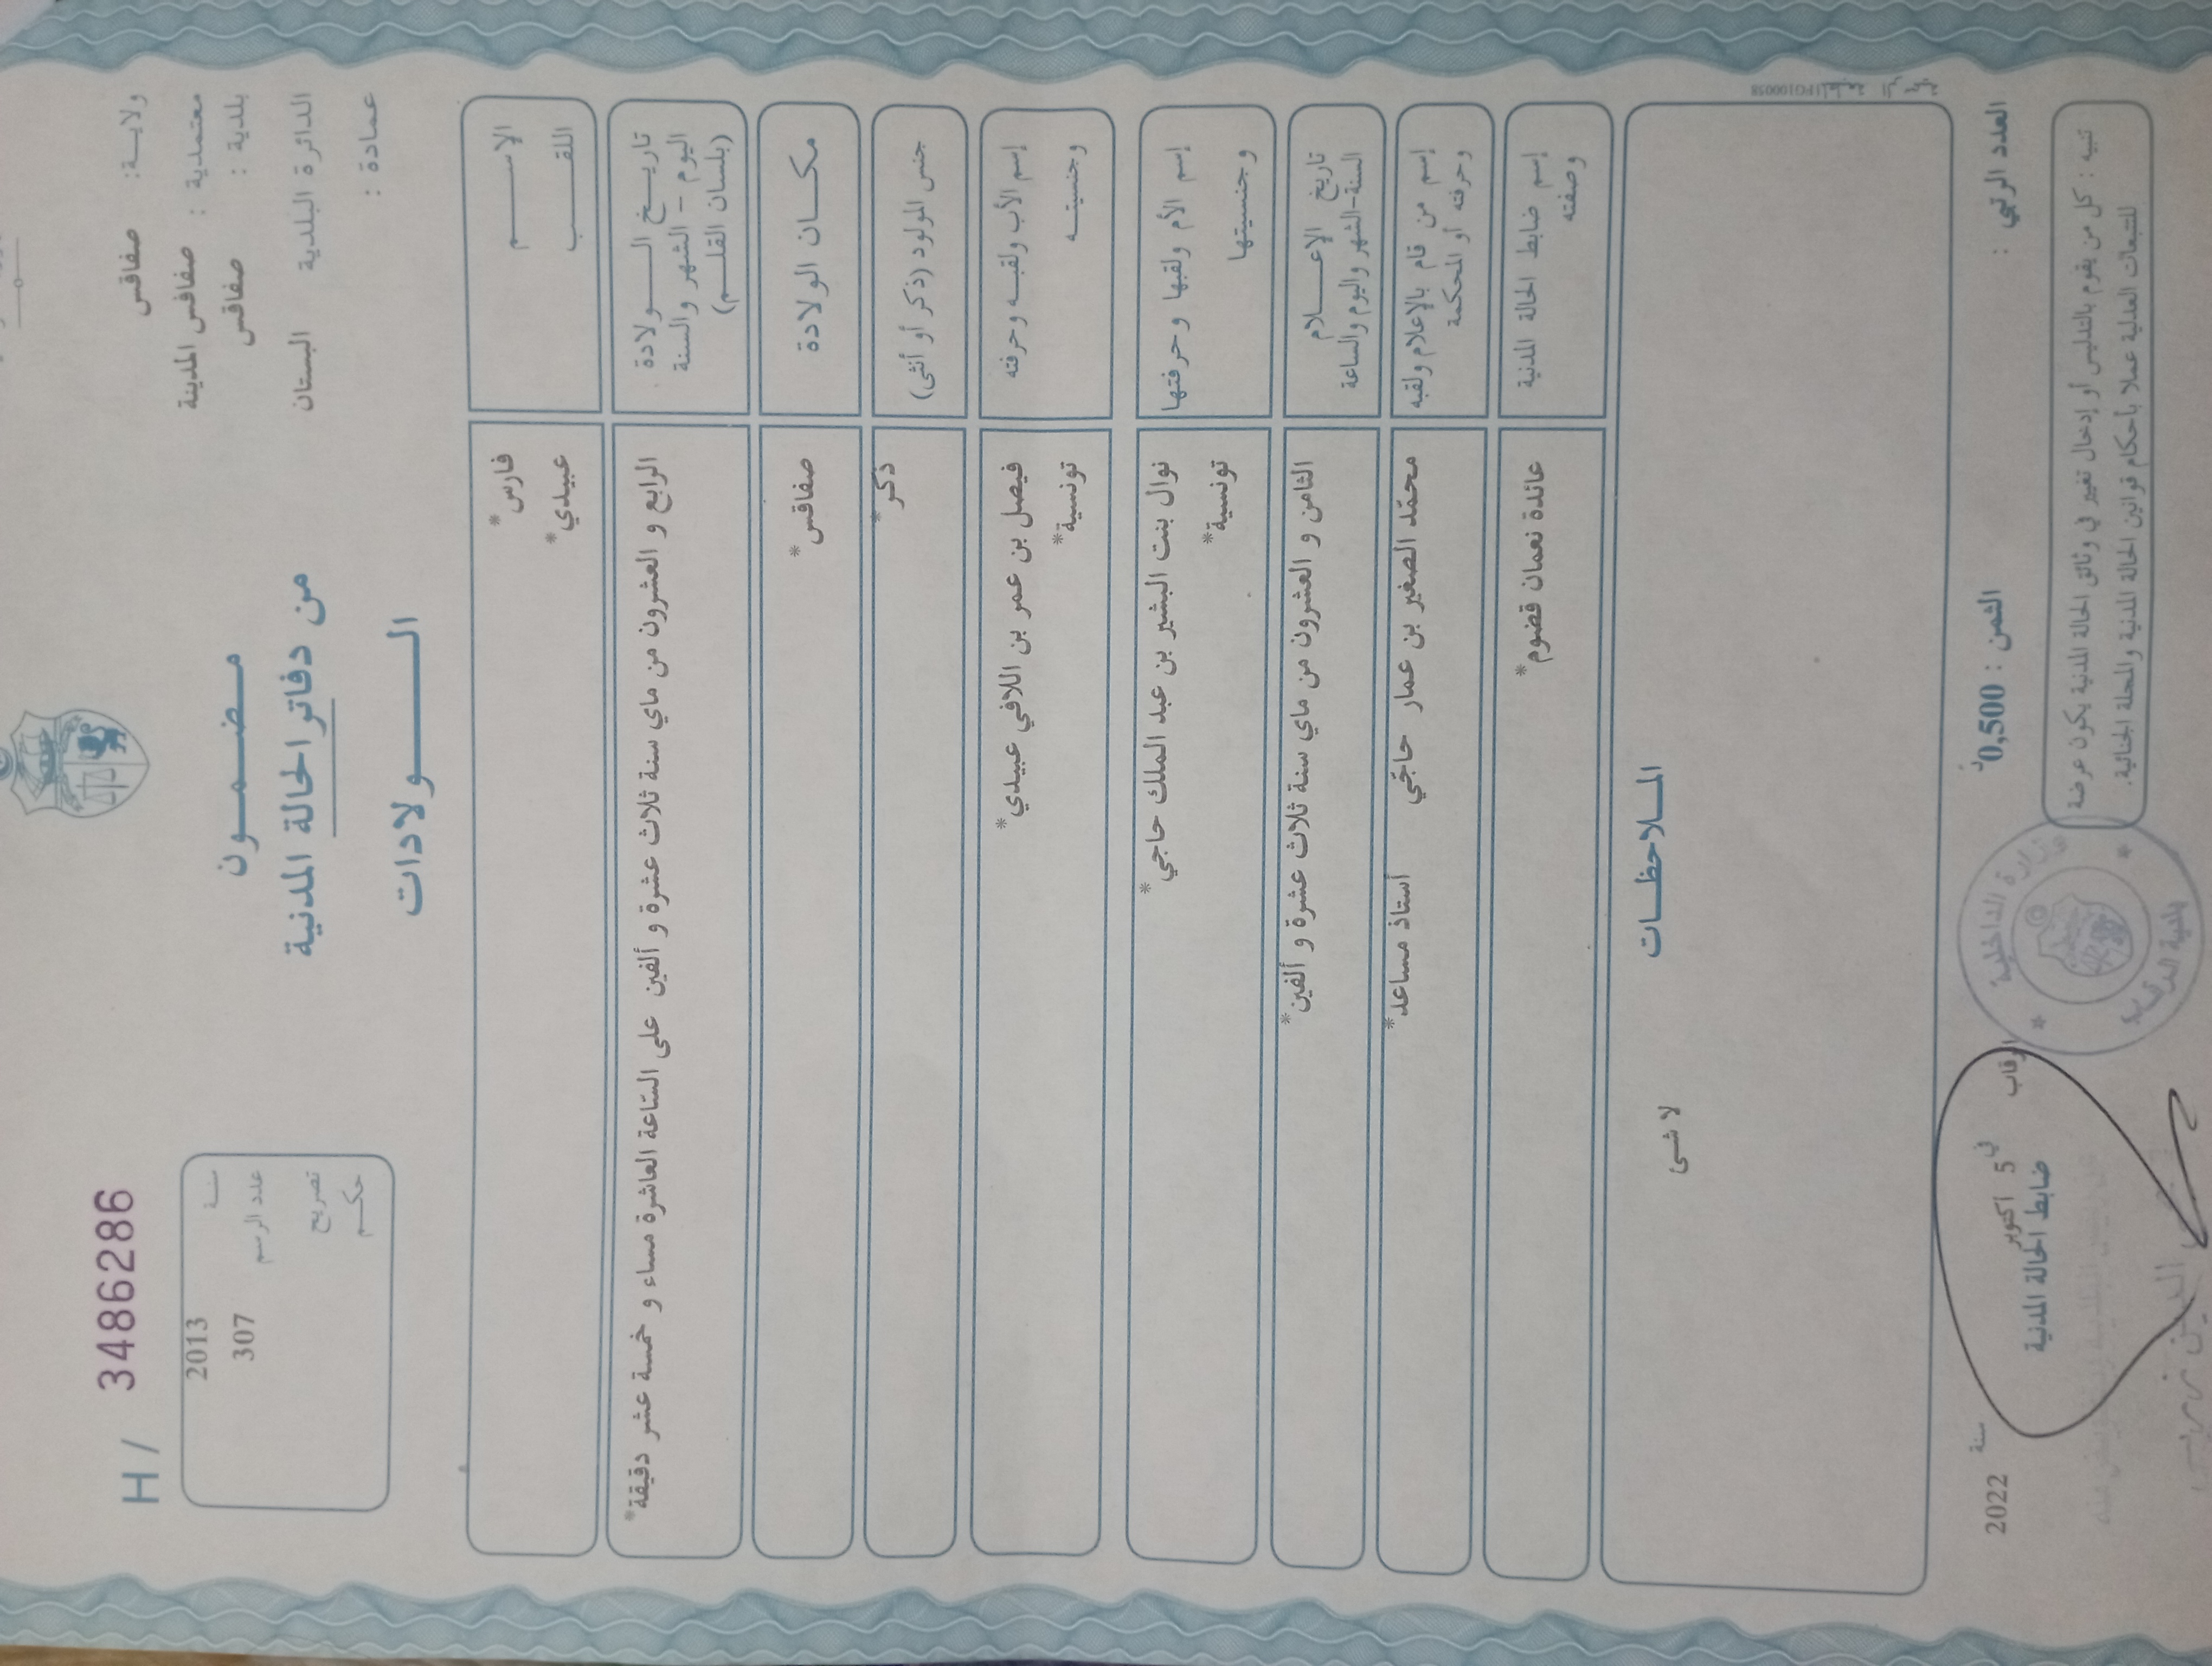 ولايـــة: صفاقس
معتمدية : صفاقس المدينة
بلدية : صفاقس
الدائرة البلدية البستان
عمادة :
مـضـمــون
من دفاتر الحالة المدنية
الــــولادات
H / 3486286
سنـة 2013
عدد الرسم 307
تصريح
حكـم
الاســـــم فارس*
اللقـــب عبيدي*
تاريــخ الـــولادة
اليوم – الشهر والسنة
(بلسان القلـــم)
الرابع و العشرون من ماي سنة ثلاث عشرة و ألفين على الساعة العاشرة مساء و خمسة عشر دقيقة*
مكــان الولادة صفاقس*
جنس المولود (ذكر أو أنثى) ذكر*
إسم الأب ولقبــه وحرفته فيصل بن عمر بن اللافي عبيدي*
وجنسيتــه تونسية*
إسم الأم ولقبها وحرفتها نوال بنت البشير بن عبد الملك حاجي*
وجنسيتها تونسية*
تاريخ الإعـــلام
السنة-الشهر واليوم والساعة
الثامن و العشرون من ماي سنة ثلاث عشرة و ألفين*
إسم من قام بالإعلام ولقبه
وحرفته أو المحكمة
محمّد الصغير بن عمار حاجّي أستاذ مساعد*
إسم ضابط الحالة المدنية
وصفته
عائدة نعمان قضوم*
المــلاحظــات
لا شئ
العدد الرتبي :
الثمن : 0,500د
الرقاب في 5 اكتوبر سنة 2022
ضابط الحالة المدنية
تنبيه : كل من يقوم بالتدليس أو إدخال تغيير في وثائق الحالة المدنية يكون عرضة
للتتبعات العدلية عملا بأحكام قوانين الحالة المدنية والمجلة الجنائية.
وزارة الداخلية
بلدية الرقاب